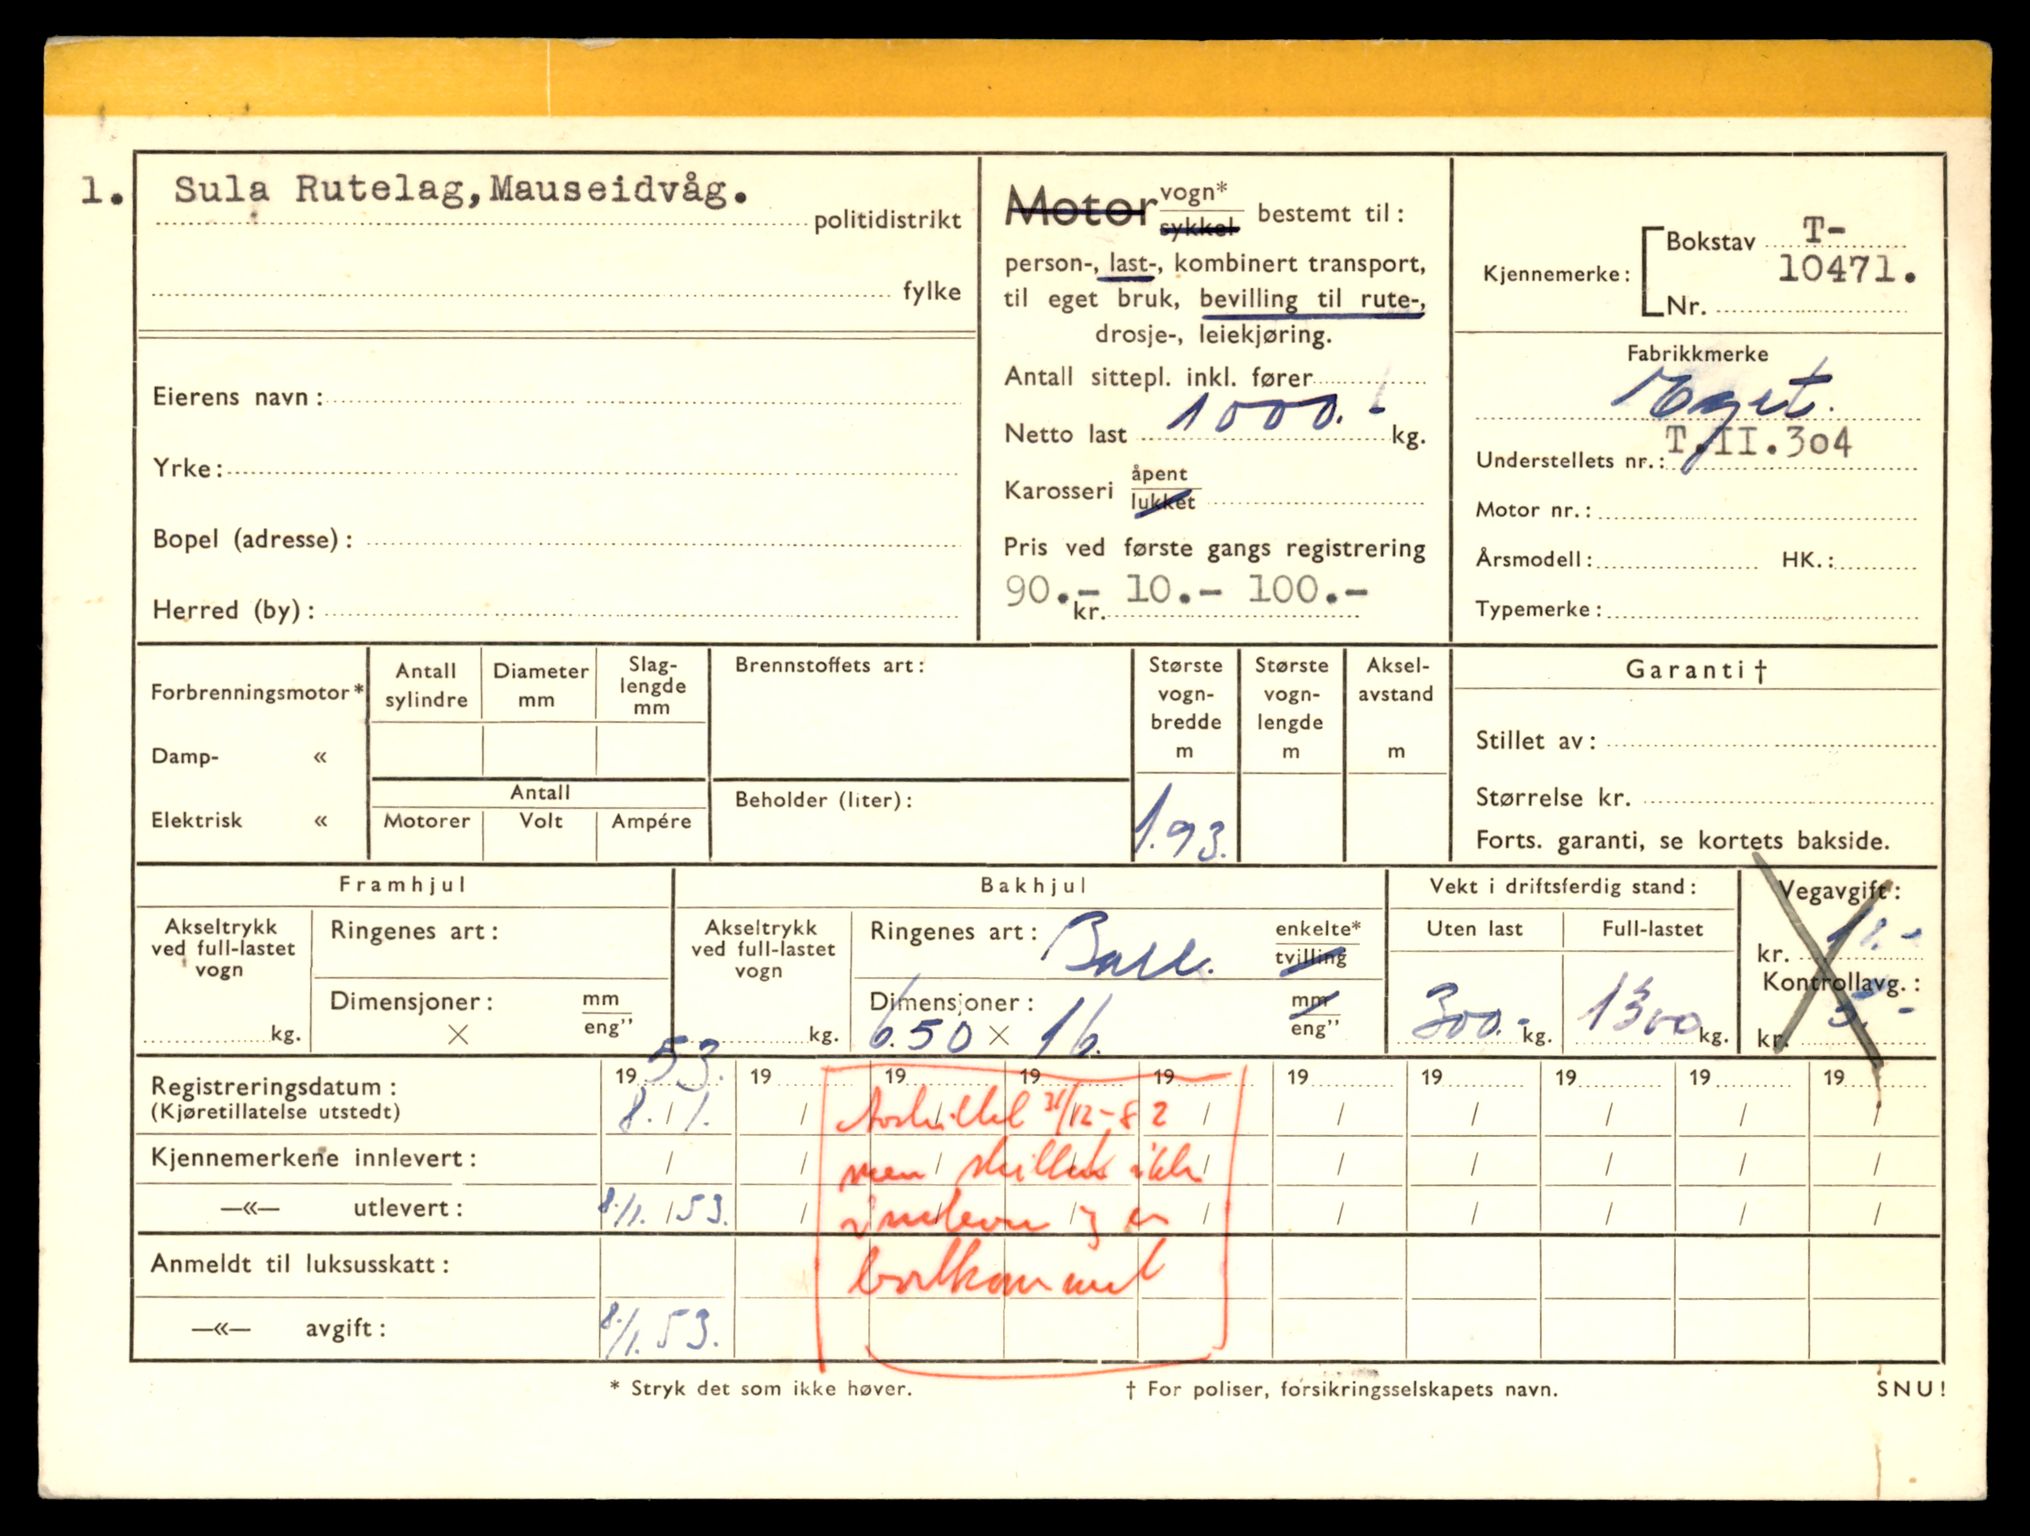 1. Sula Rutelag, Mauseidvåg.
politidistrikt
fylke
Eierens navn:
Yrke:
Bopel (adresse):
Herred (by):
Motor vogn*
sykkel bestemt til:
person-, last-, kombinert transport,
til eget bruk, bevilling til rute-,
drosje-, leiekjøring.
Antall sittepl. inkl. fører
Netto last 1000.- kg.
Karosseri åpent
lukket
Pris ved første gangs registrering
90.- 10.- 100.-
kr.
Kjennemerke: Bokstav T-
10471.
Nr.
Fabrikkmerke
Eget.
T.II.304
Understellets nr.:
Motor nr.:
Årsmodell: HK.:
Typemerke:
Forbrenningsmotor*
Damp- «
Elektrisk «
Antall sylindre
Diameter mm
Slag-
lengde
mm
Antall
Motorer Volt Ampére
Brennstoffets art:
Beholder (liter):
Største
vogn-
bredde
m
1.93.
Største
vogn-
lengde
m
Aksel-
avstand
m
Garanti †
Stillet av:
Størrelse kr.
Forts. garanti, se kortets bakside.
Framhjul
Akseltrykk
ved full-lastet
vogn
kg.
Ringenes art:
Dimensjoner: mm
× eng”
Bakhjul
Akseltrykk
ved full-lastet
vogn
kg.
Ringenes art: enkelte*
tvilling
Dimensjoner: mm
6.50 × 16. eng”
Vekt i driftsferdig stand:
Uten last Full-lastet
300.- kg. 1300 kg.
Vegavgift:
kr.
Kontrollavg.:
kr. 5.-
Registreringsdatum: 19 53. 19 19 19 19 19 19 19 19 19
(Kjøretillatelse utstedt) 8. / 1.
Kjennemerkene innlevert:
—«— utlevert: 8./1. 53.
Anmeldt til luksusskatt:
—«— avgift: 8./1. 53.
Avskiltet 31/12-82
men skiltene ikke
innlevert og er
bortkommet
* Stryk det som ikke høver.
† For poliser, forsikringsselskapets navn.
SNU!